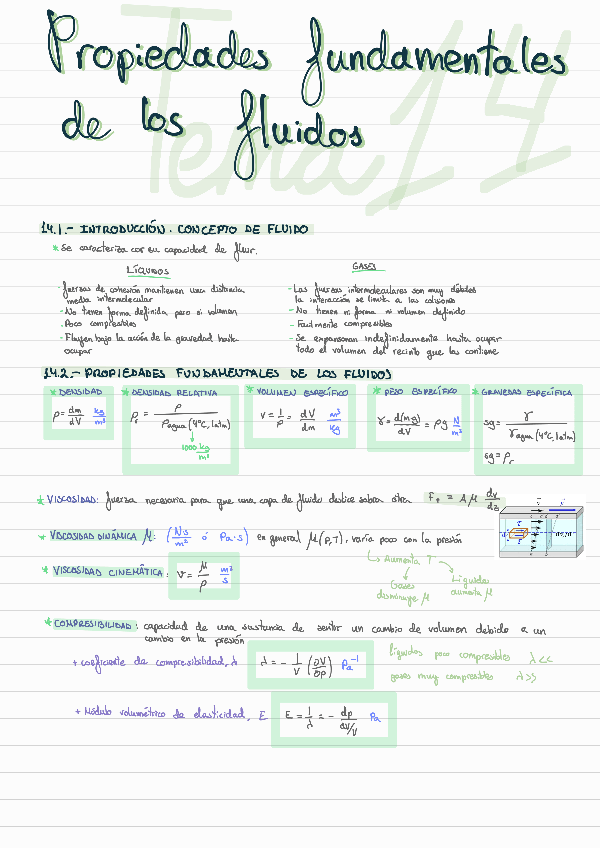 Tema 14
Propiedades fundamentales
de los fluidos
14.1.- INTRODUCCIÓN. CONCEPTO DE FLUIDO
* Se caracteriza por su capacidad de fluir.
LÍQUIDOS
- fuerzas de cohesión mantienen una distancia
media intermolecular
- No tienen forma definida pero si volumen
- Poco compresibles
- Fluyen bajo la acción de la gravedad hasta
ocupar
GASES
- Las fuerzas intermoleculares son muy débiles
la interacción se limita a las colisiones
- No tienen ni forma ni volumen definido
- Facilmente compresibles
- Se expansionan indefinidamente hasta ocupar
todo el volumen del recinto que las contiene
14.2.- PROPIEDADES FUNDAMENTALES DE LOS FLUIDOS
* DENSIDAD
ρ = dm/dV kg/m³
* DENSIDAD RELATIVA
ρr = ρ / ρagua (4°C, 1atm)
↓
1000 kg/m³
* VOLUMEN ESPECÍFICO
v = 1/ρ = dV/dm m³/kg
* PESO ESPECÍFICO
γ = d(mg)/dV = ρg N/m³
* GRAVEDAD ESPECÍFICA
sg = γ / γagua (4°C, 1atm)
sg = ρr
* VISCOSIDAD: fuerza necesaria para que una capa de fluido deslice sobre otra F = Aμ dv/dz
* VISCOSIDAD DINÁMICA μ: (N·s/m² ó Pa·s) en general μ(P,T), varía poco con la presión
↳ Aumenta T
Gases
disminuye μ
Líquidos
aumenta μ
* VISCOSIDAD CINEMÁTICA: ν = μ/ρ m²/s
* COMPRESIBILIDAD: capacidad de una sustancia de sentir un cambio de volumen debido a un
cambio en la presión
+ coeficiente de compresibilidad, λ λ = - 1/V (∂V/∂p) Pa⁻¹
líquidos poco compresibles λ<<
gases muy compresibles λ>>
+ Módulo volumétrico de elasticidad, E E = 1/λ = - dp/(dV/V) Pa